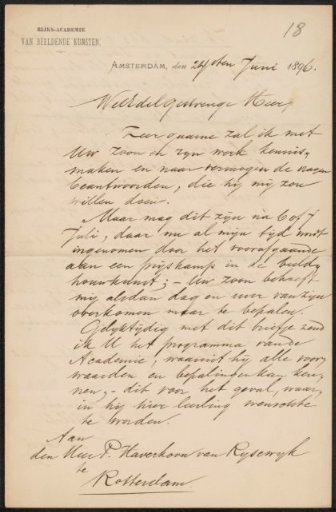 18
RIJKS-ACADEMIE
VAN BEELDENDE KUNSTEN.
AMSTERDAM, den 24sten Juni 1896.
WelEdelGestrenge Heer,
Zeer gaarne zal ik met
Uw zoon en zyn werk kennis
maken en naar vermogen de vragen
beantwoorden, die hij my zou
willen doen.
Maar mag dit zijn na 6 of 7
Juli, daar nu al mijn tyd wordt
ingenomen door het voorafgaande
aan een prijskamp in de beeld-
houwkunst; - Uw zoon behoeft
my alsdan dag en uur van zyn
overkomen maar te bepalen.
Gelyktydig met dit briefje zend
ik U het programma van de
Academie, waaruit hij alle voor-
waarden en bepalingen kan ken-
nen, - dit voor het geval, waar-
in hij hier leerling wenschte
te worden.
Aan
den Heer P. Haverkorn van Rysewyk
te
Rotterdam